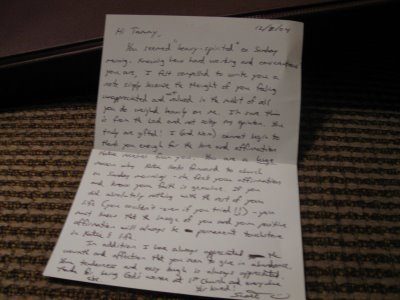 12/8/04
Hi Tammy,
You seemed "heavy-spirited" on Sunday
morning. Knowing how hard working and conscientious
you are, I felt compelled to write you a
note simply because the thought of you feeling
unappreciated and valued in the midst of all
you do weighed heavily on me. I'm sure this
is from the Lord and not my
truly are gifted! I (and Katie) cannot begin to
thank you enough for the love and affirmation
Katie receives from you. You are a huge
reason why Katie looks forward to church
on Sunday mornings. She feels your affirmation
and knows your faith is genuine. If you
did absolutely nothing with the rest of your
life (you couldn't even if you tried !!) - you
must know that the image of you and your positive
affirmation will always be permanent touchstone
in Katie's life.
In addition I have always appreciated the
warmth and affection that you seem to give in abundance.
Your tenderness and easy laugh is always appreciated
Thanks for being God's woman at 1st Church and everywhere
else
You're loved!